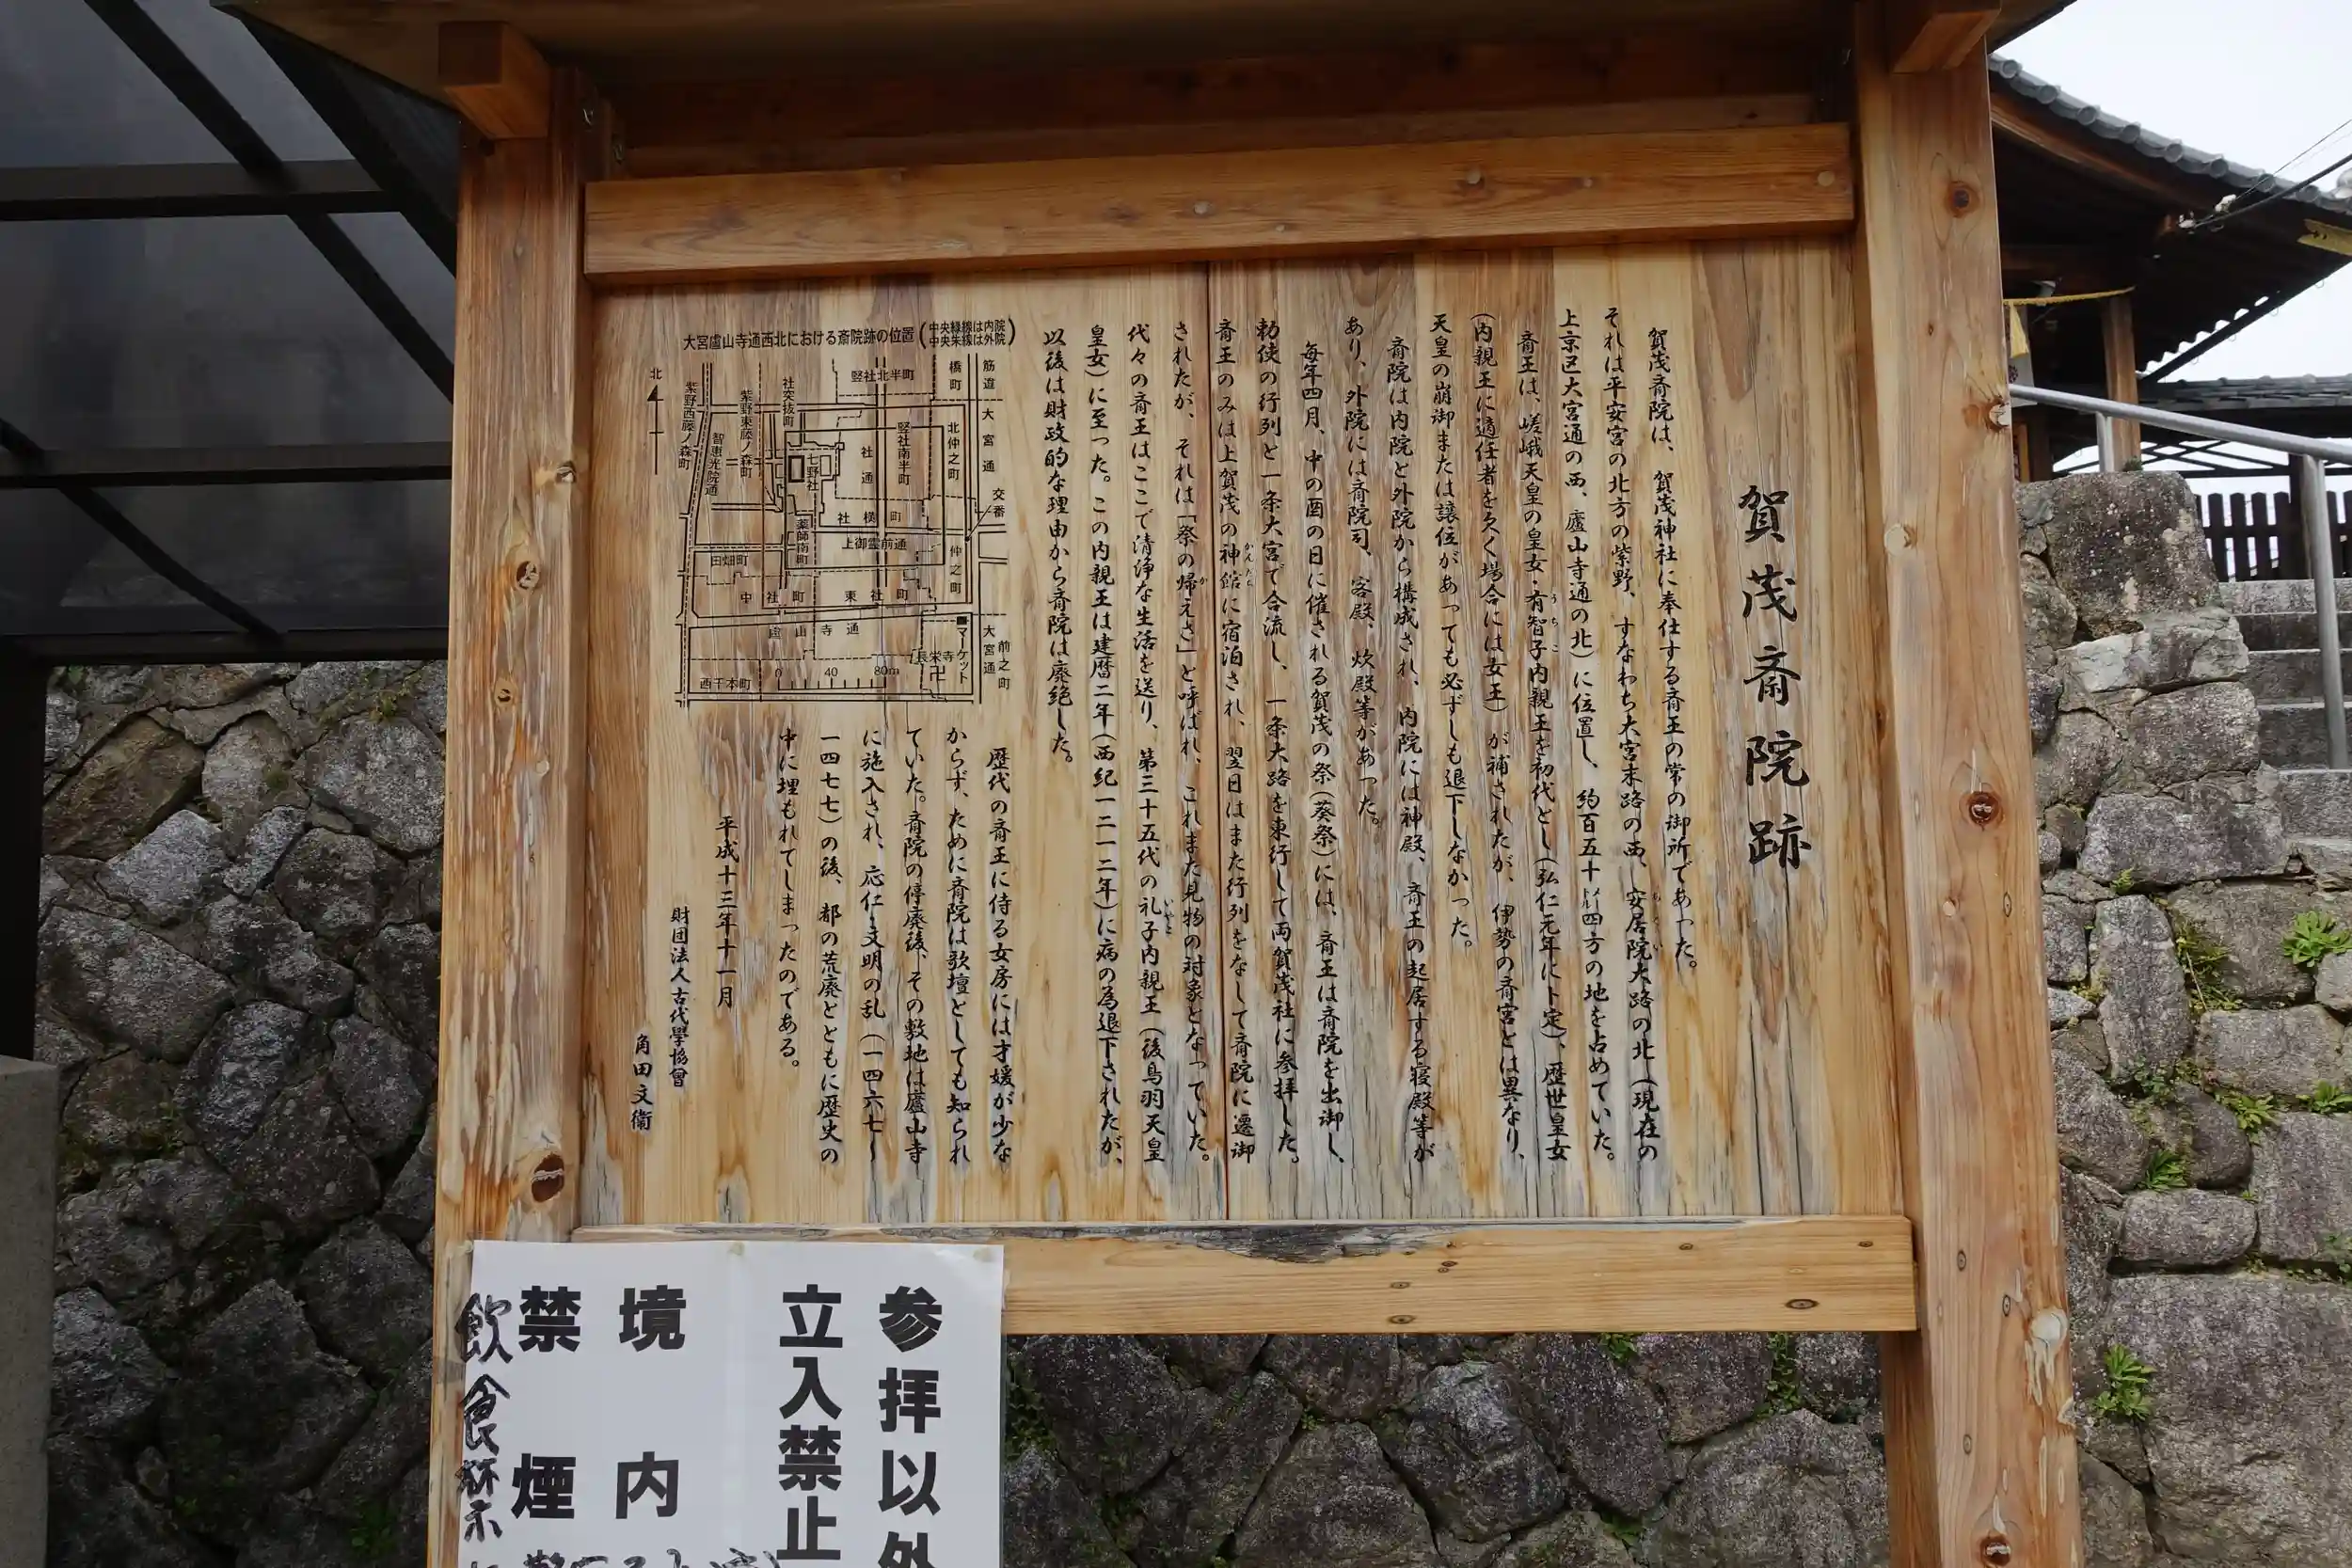 賀茂斎院跡
賀茂斎院は、賀茂神社に奉仕する斎王の常の御所であった。
それは平安宮の北方の紫野、すなわち大宮末路の西、安居院大路の北(現在の
上京区大宮通の西、廬山寺通の北)に位置し、約百五十㍍四方の地を占めていた。
斎王は、嵯峨天皇の皇女・有智子内親王を初代とし(弘仁元年に卜定)、歴世皇女
(内親王に適任者を欠く場合には女王)が補されたが、伊勢の斎宮とは異なり、
天皇の崩御または譲位があっても必ずしも退下しなかった。
斎院は内院と外院から構成され、内院には神殿、斎王の起居する寝殿等が
あり、外院には斎院司、客殿、炊殿等があった。
毎年四月、中の酉の日に催される賀茂の祭(葵祭)には、斎王は斎院を出御し、
勅使の行列と一条大宮で合流し、一条大路を東行して両賀茂社に参拝した。
斎王のみは上賀茂の神館に宿泊され、翌日はまた行列をなして斎院に還御
されたが、それは「祭の帰えさ」と呼ばれ、これまた見物の対象となっていた。
代々の斎王はここで清浄な生活を送り、第三十五代の礼子内親王(後鳥羽天皇
皇女)に至った。この内親王は建暦二年(西紀一二一二年)に病の為退下されたが、
以後は財政的な理由から斎院は廃絶した。
歴代の斎王に侍る女房には才媛が少な
からず、ために斎院は歌壇としても知られ
ていた。斎院の停廃後、その敷地は廬山寺
に施入され、応仁・文明の乱(一四六七〜
一四七七)の後、都の荒廃とともに歴史の
中に埋もれてしまったのである。
平成十三年十一月
財団法人古代學協會
角田文衞
大宮廬山寺通西北における斎院跡の位置(中央緑線は内院
中央朱線は外院)
北
筋違
橋町
大宮通
竪社北半町
社突抜町
紫野東藤ノ森町
紫野西藤ノ森町
智恵光院通
北仲之町
竪社南半町
社通
七野社
交番
社横町
薬師南町
上御霊前通
仲之町
田畑町
中社町
東社町
廬山寺通
前之町
大宮通
マーケット
長栄寺
西千本町
0 40 80m
参拝以外
立入禁止
境内
禁煙
飲食